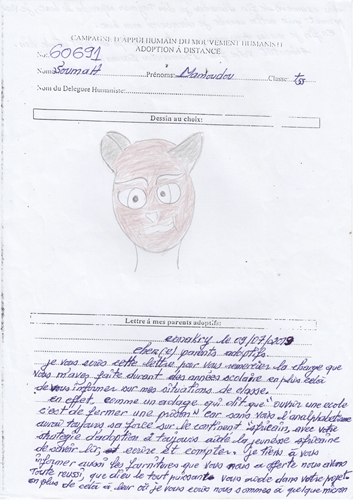 CAMPAGNE D'APPUI HUMAIN DU MOUVEMENT HUMANISTE
ADOPTION À DISTANCE
No: 60691
Nom: Soumah Prénoms: Mamoudou Classe: tss
Nom du Delegue Humaniste:
Dessin au choix:
Lettre à mes parents adoptifs:
conakry le 09/07/2019
cher(e) parents adoptifs.
je vous ecris cette lettre pour vous remercier la charge que
vous m'aves faite durant des années scolaire en plus celui
de vous informer sur mes situations de classe.
en effet, comme un adage qui dit que "ouvrir une ecole
c'est de fermer une prison" car sans vous l'analphabetisme
aurai toujours sa force sur le continent africain, avec votre
strategie d'adoption a toujours aidé la jeunesse africaine
de savoir lire et ecrire et compter. je tiens à vous
informer aussi les fournitures que vous nous a offerte nous avions
toute reussi, que dieu le tout puissant vous aide dans votre projet
en plus de celui à leur où je vous ecris nous sommes à quelque